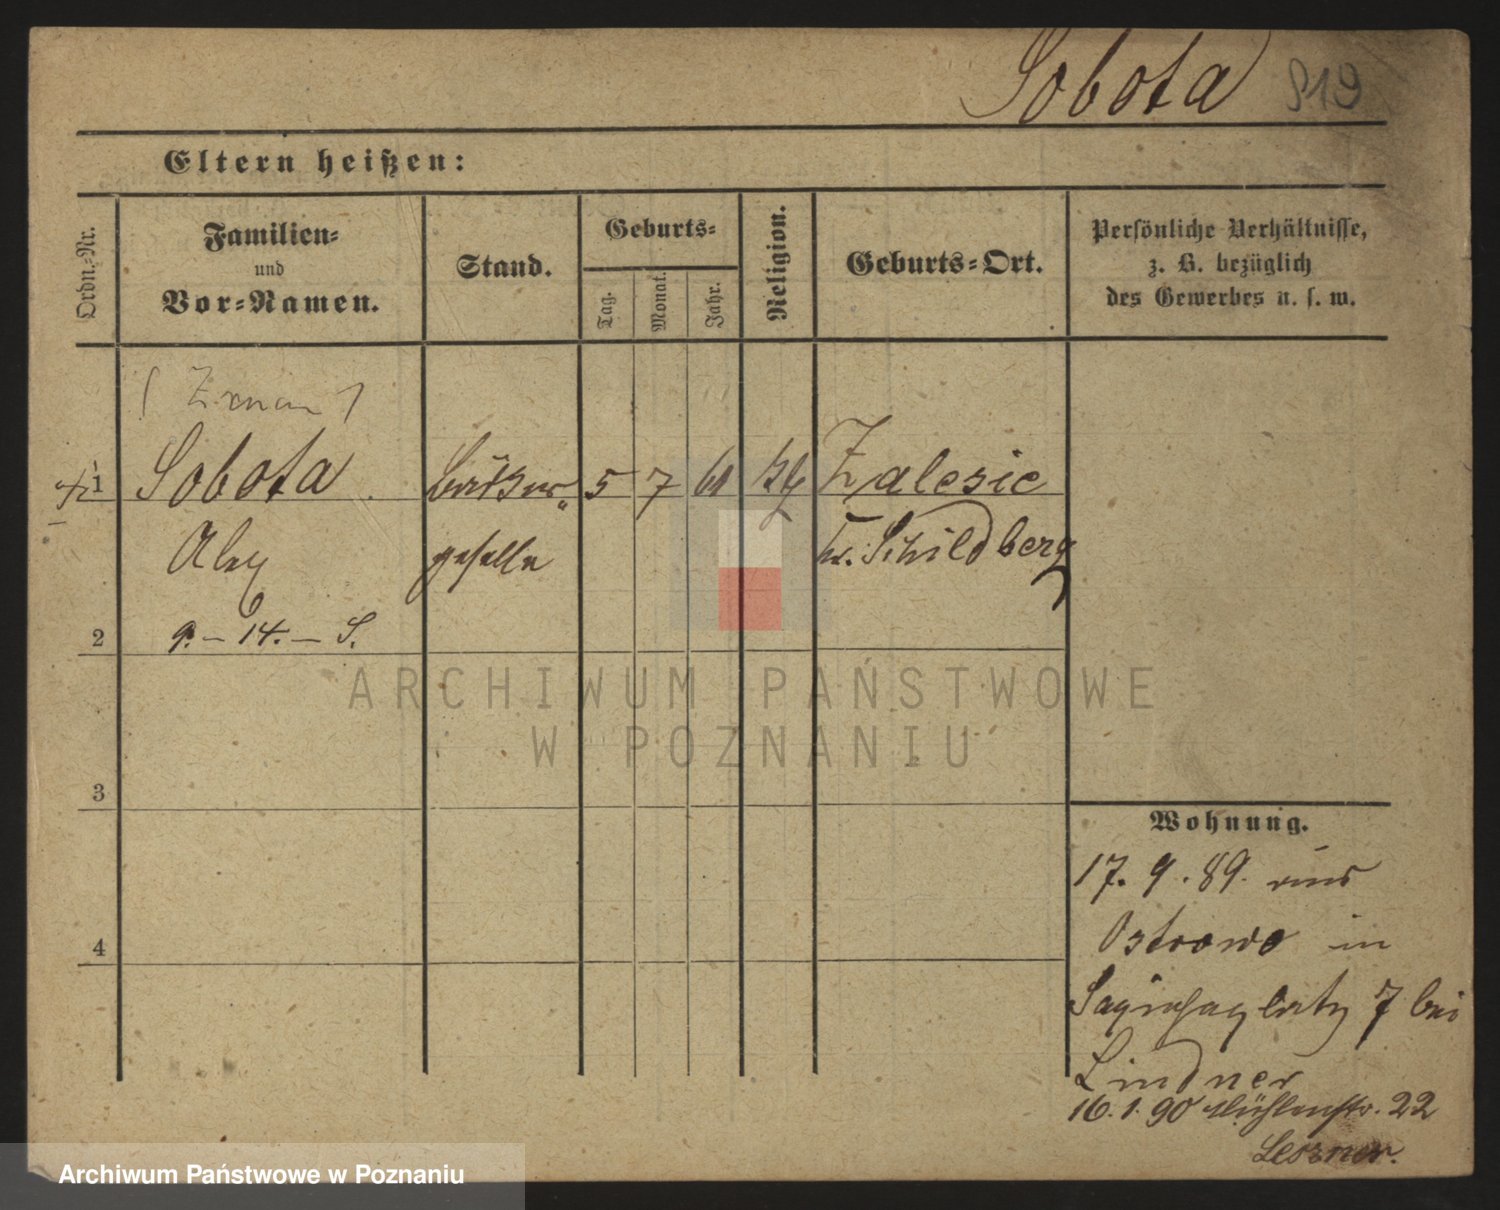 Sobota 919
Eltern heißen:
Ordn.-Nr.
Familien-
und
Vor-Namen.
Stand.
Geburts-
Tag.
Monat.
Jahr.
Religion.
Geburts-Ort.
Persönliche Verhältnisse,
z. B. bezüglich
des Gewerbes u. s. w.
1 Sobota Bäcker 5 7 61 kth Zalesie
Alex geselle Kr. Schildberg
2 9. – 14. – S.
3
4
Wohnung.
17. 9. 89. aus
Ostrowo in
Sapiehaplatz 7 bei
Lindner
16. 1. 90 Mühlenstr. 22
ARCHIWUM PAŃSTWOWE
W POZNANIU
Archiwum Państwowe w Poznaniu